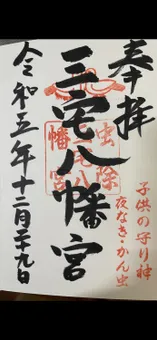 奉拝
子供の守り神
夜なき・かん虫
三宅八幡宮
虫除
八幡宮
令和五年十二月二十九日